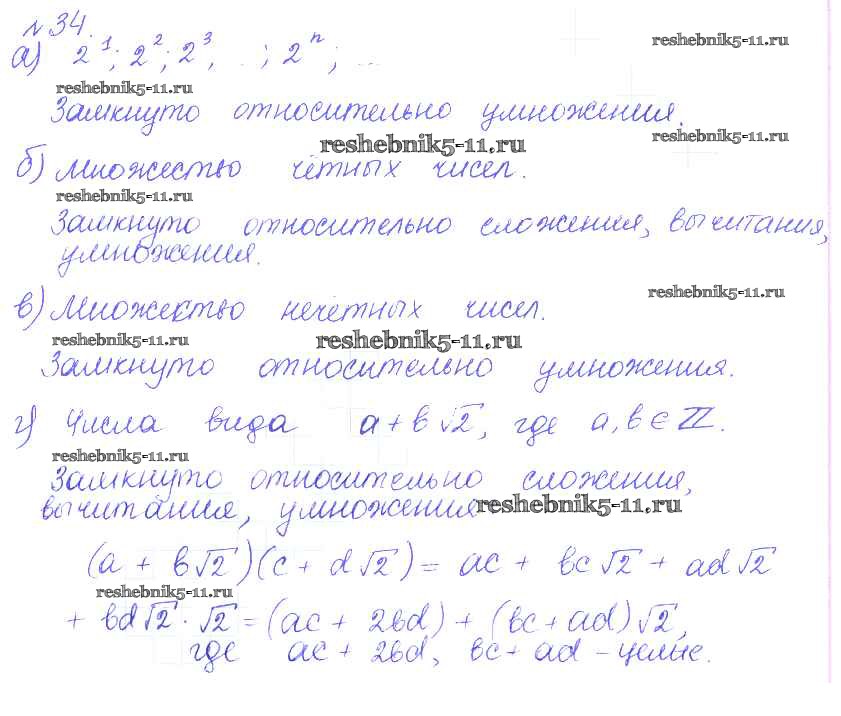 №34.
а) 2¹; 2²; 2³, ...; 2ⁿ; ...
reshebnik5-11.ru
reshebnik5-11.ru
Замкнуто относительно умножения.
reshebnik5-11.ru
reshebnik5-11.ru
б) Множество чётных чисел.
reshebnik5-11.ru
Замкнуто относительно сложения, вычитания,
умножения.
reshebnik5-11.ru
в) Множество нечётных чисел.
reshebnik5-11.ru
reshebnik5-11.ru
Замкнуто относительно умножения.
г) Числа вида a + b√2, где a, b ∈ ℤ.
reshebnik5-11.ru
Замкнуто относительно сложения,
вычитания, умножения
reshebnik5-11.ru
(a + b√2)(c + d√2) = ac + bc√2 + ad√2
reshebnik5-11.ru
+ bd√2 · √2 = (ac + 2bd) + (bc + ad)√2,
где ac + 2bd, bc + ad – целые.